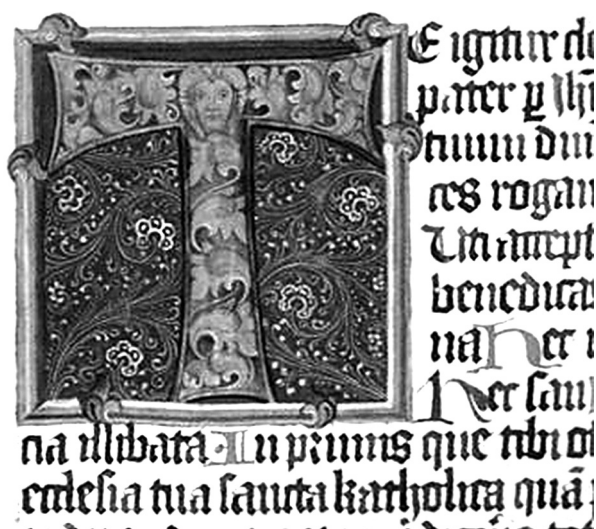 TE igitur cle
pater ꝑ ihm̄
tuum dm̄
ces rogam
Uti accept
benedicas
na Hec
Hec san
cta illibata. In primis que tibi of
ecclesia tua sancta katholica quā p